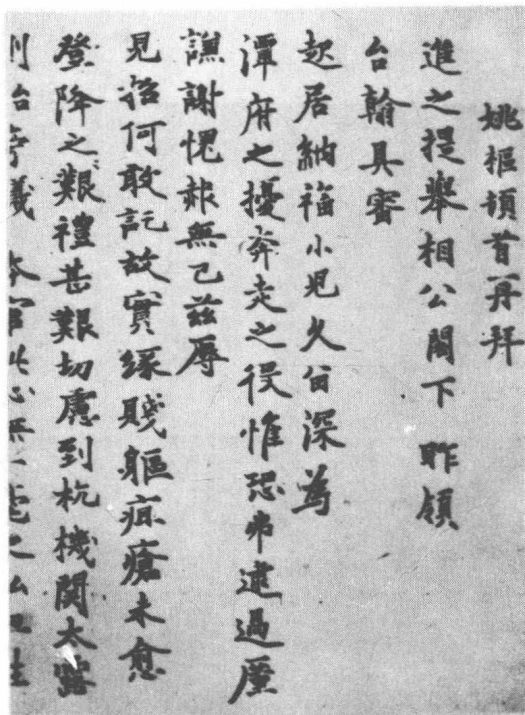 姚樞頓首再拜
進之提舉相公閣下 昨領
台翰具審
起居納福小兒久留深為
潭府之擾奔走之役惟恐弗逮過廑
謙謝愧赧無已茲辱
見招何敢託故實緣賤軀疽瘡未愈
登降之艱禮甚艱切慮到杭機関太露